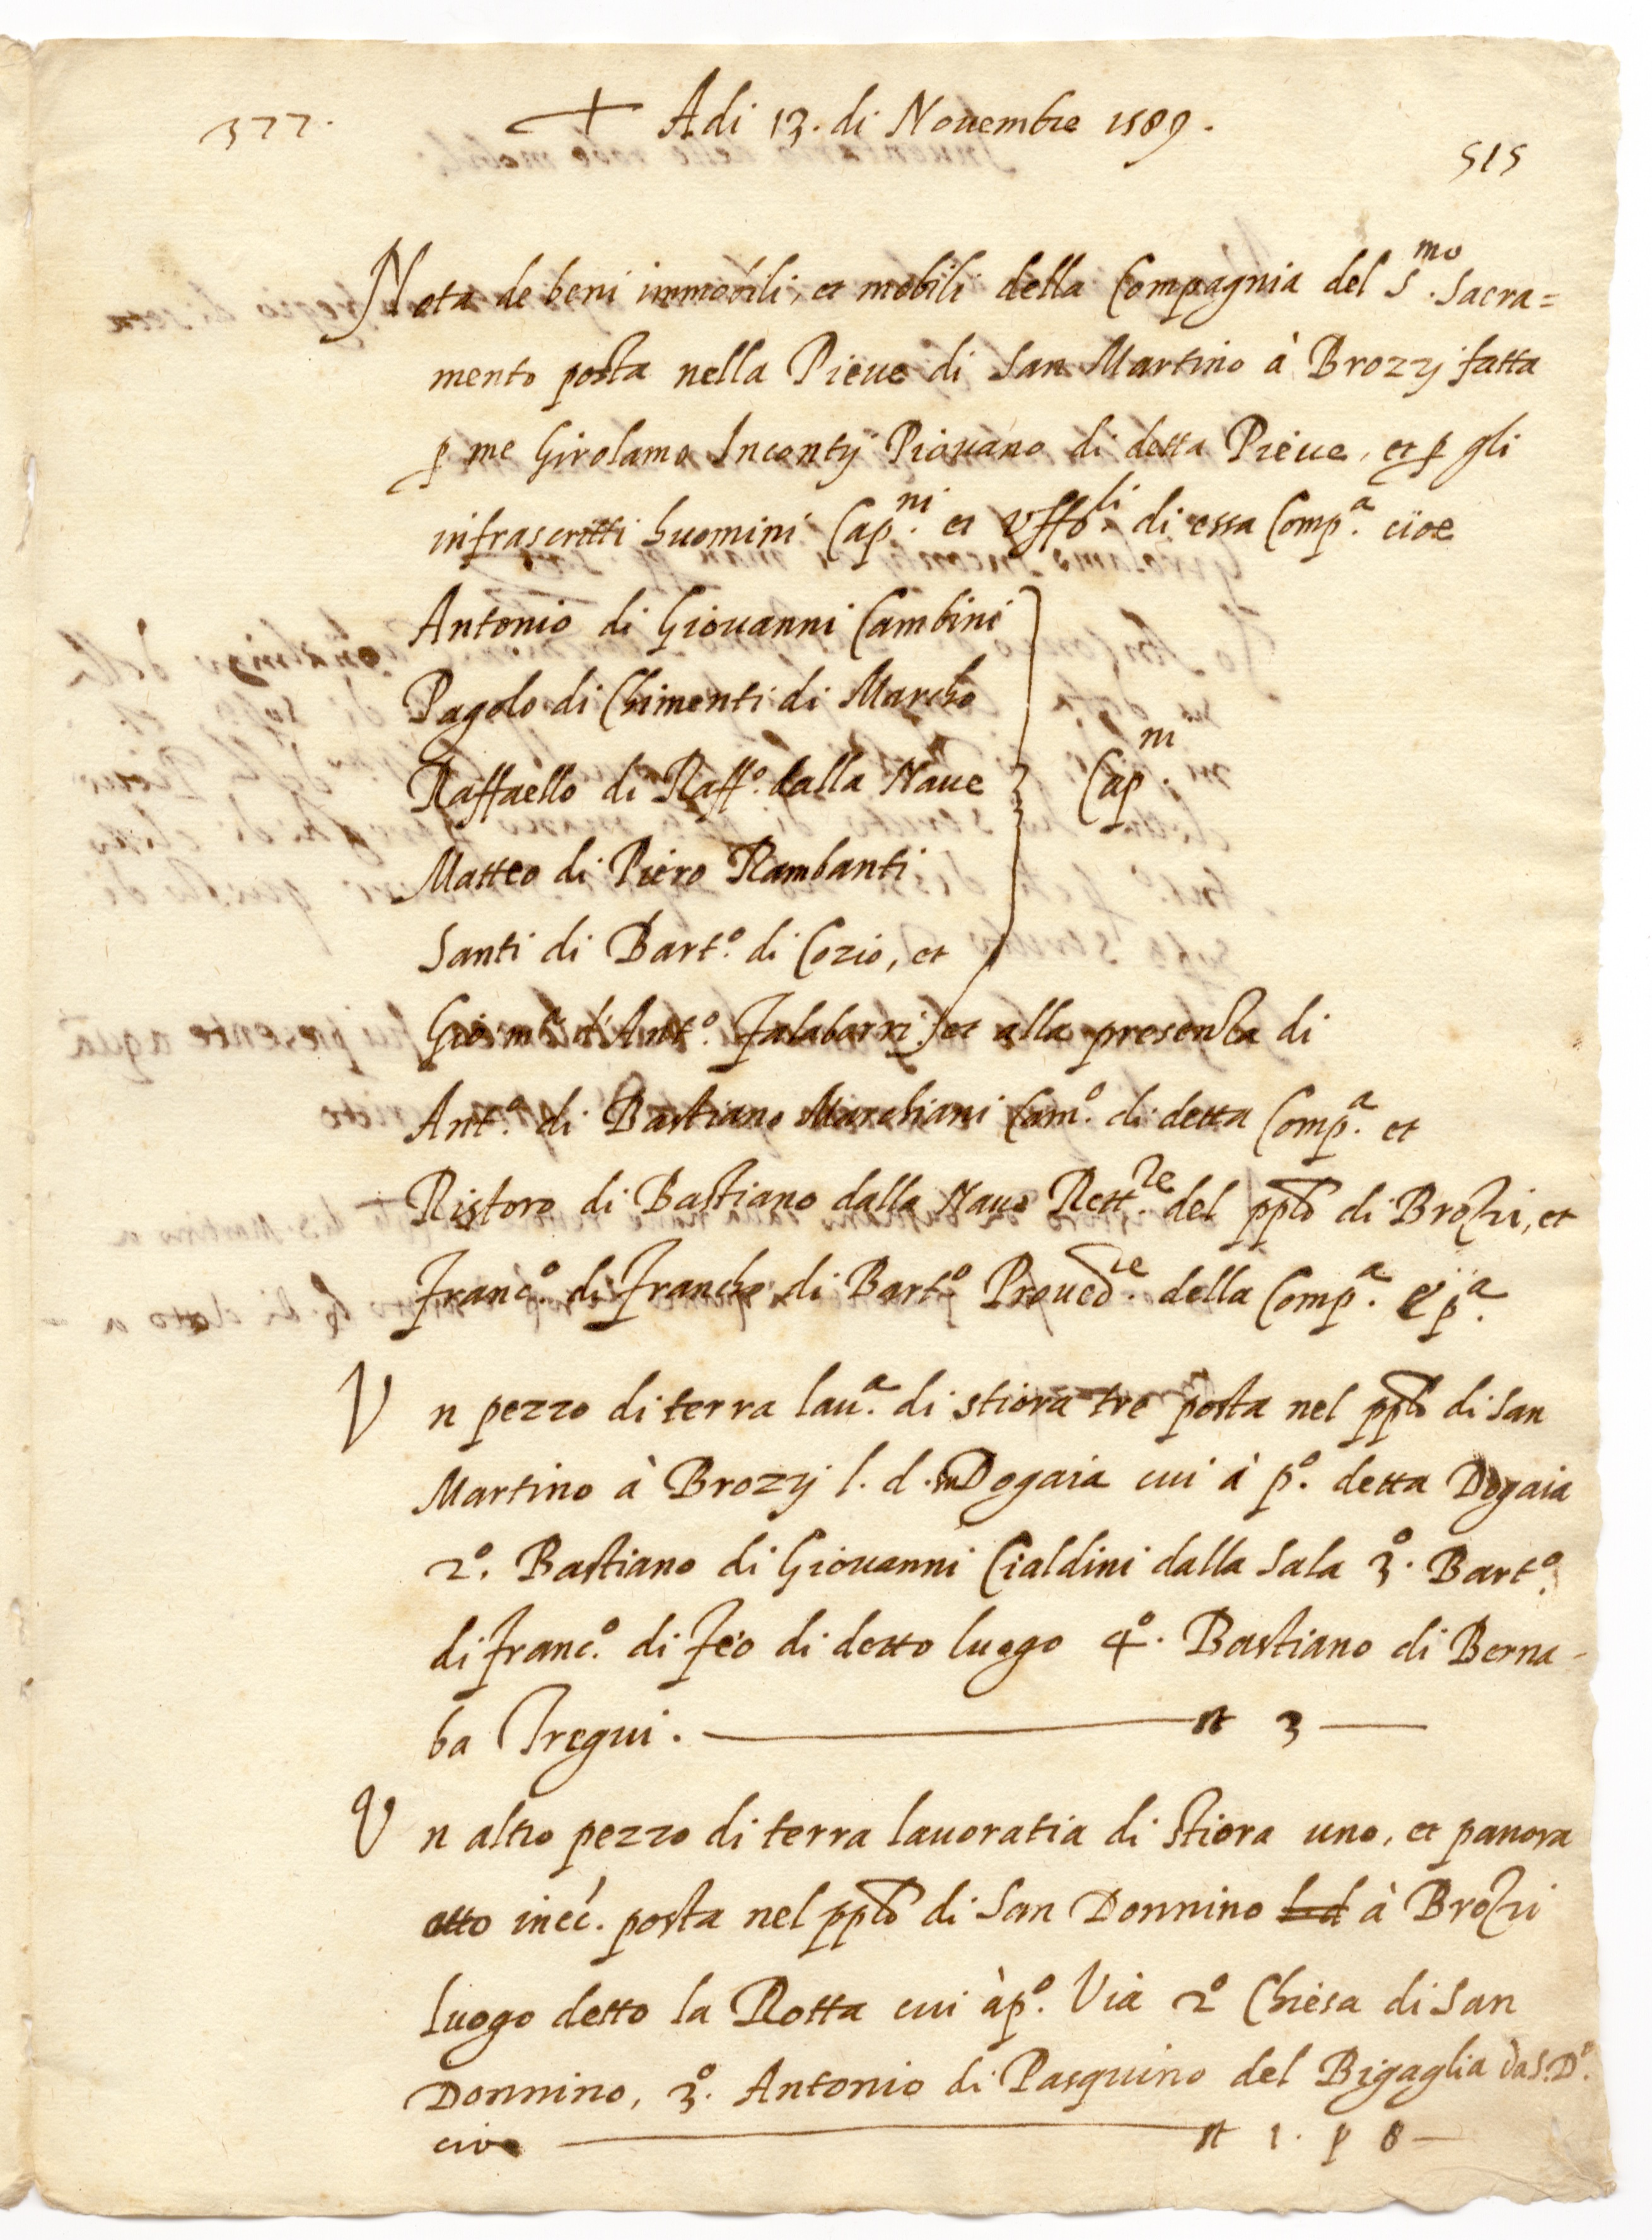 377.
+ Adi 13. di Nouembre 1589.
515
Nota de beni immobili, et mobili della Compagnia del S.mo Sacra=
mento posta nella Pieue di San Martino à Brozzj fatta
p me Girolamo Incontrj Piouano di detta Pieue, et p gli
infrascritti huomini Cap.ni et Vffo.li di essa Comp.a cioe
Antonio di Giouanni Cambini
Pagolo di Chimenti di Marcho
Raffaello di Raff.o dalla Naue } Cap.ni
Matteo di Piero Rambanti
Santi di Bart.o di Cozio, et
d'Ant.o et alla presenza di
Ant.o di Bastiano Marchiani Cam.o di detta Comp.a et
Ristoro di Bastiano dalla Naue Rett.re del pplo di Brozzi, et
Franc.o di Francho di Bart.o Proued.re della Comp.a e p.a
Un pezzo di terra lau.a di stiora tre posta nel pplo di San
Martino à Brozzj l. d. in Dogaia cui à p.o detta Dogaia
2.o Bastiano di Giouanni Cialdini dalla Sala 3.o Bart.o
di Franc.o di Feo di detto luogo 4.o Bastiano di Berna-
ba Fregui. st 3
Un altro pezzo di terra lauoratia di stiora uno, et panora
otto inc.a posta nel pplo di San Donnino l d à Brozzi
luogo detto la Rotta cui à p.o Via 2.o Chiesa di San
Donnino, 3.o Antonio di Pasquino del Bigaglia da S. D.o
circa st 1. p 8